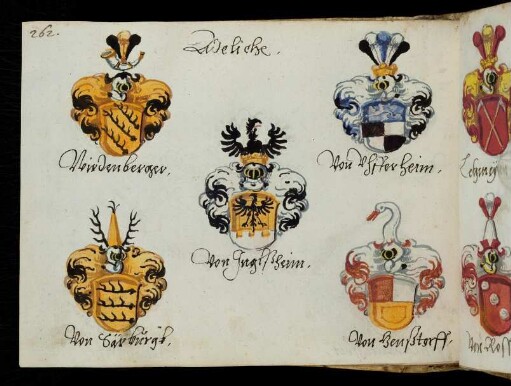 262.
Adeliche.
Wirdenberger.
Von Vtterheim.
Von Inglsheim.
Von Sarburgk.
Von Henstorff.
Von Ross